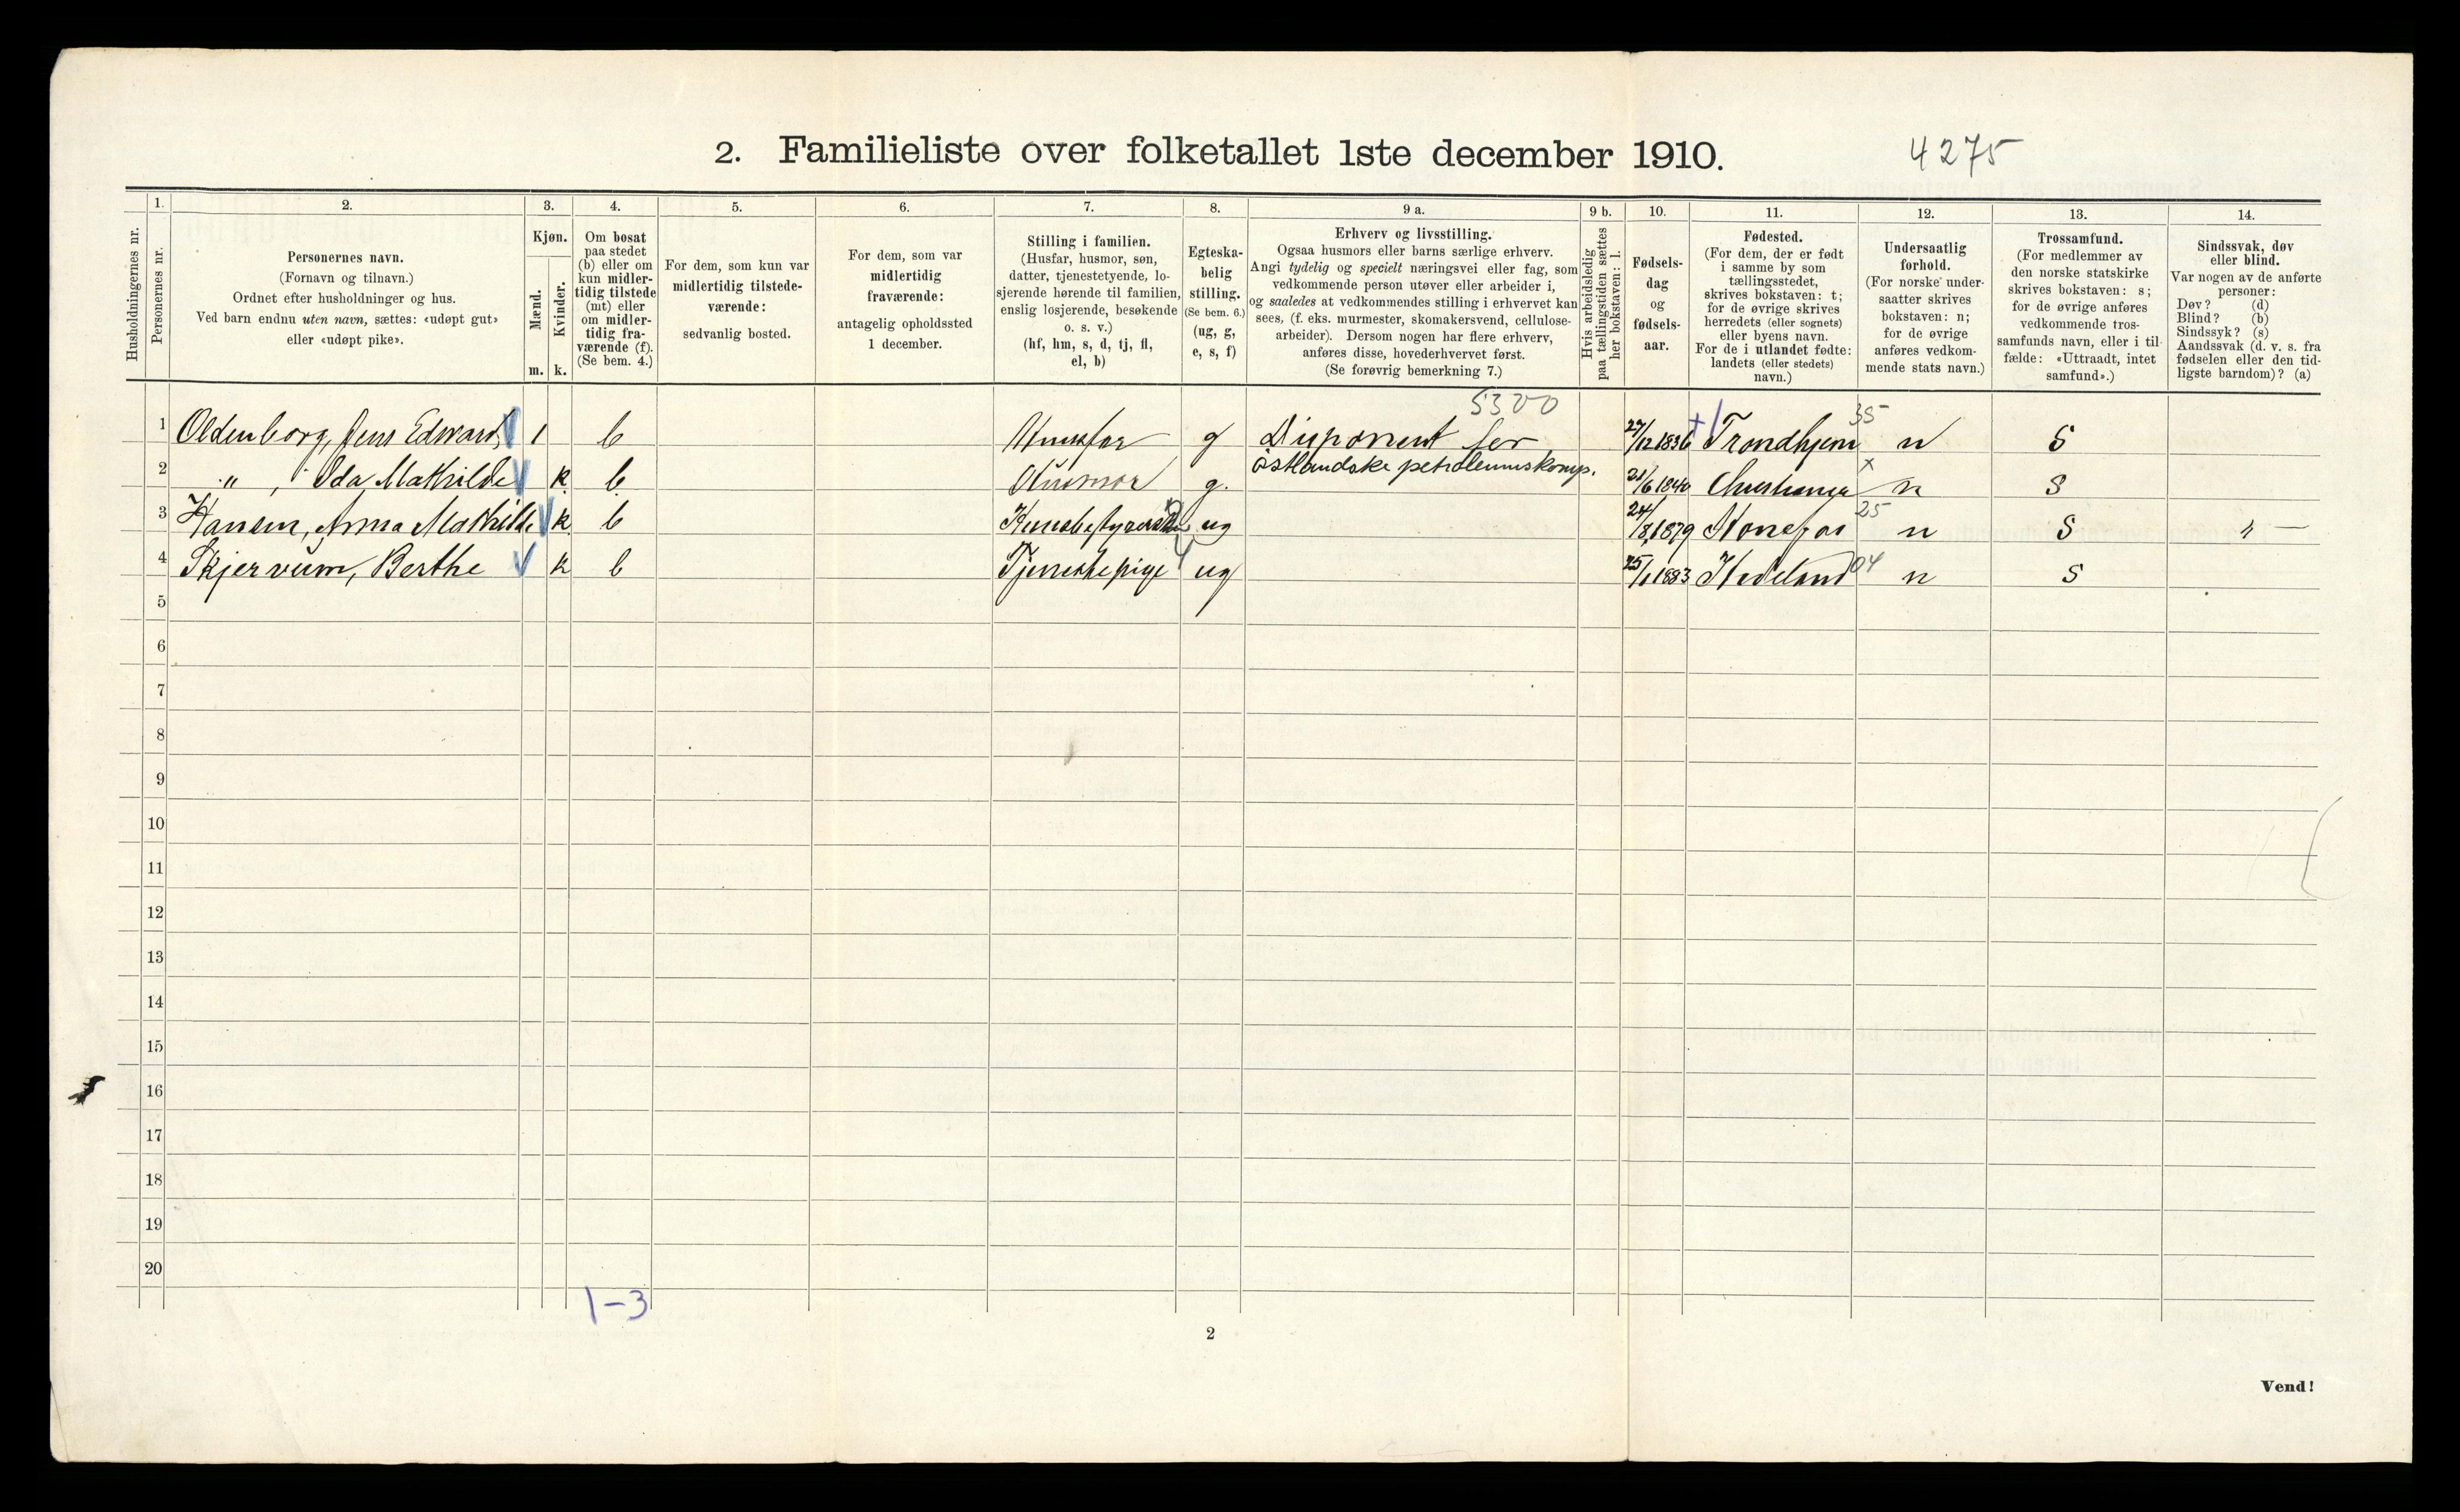 2. Familieliste over folketallet 1ste december 1910.
4275
Husholdningernes nr.
1.
Personernes nr.
2.
Personernes navn.
(Fornavn og tilnavn.)
Ordnet efter husholdninger og hus.
Ved barn endnu uten navn, sættes: «udøpt gut»
eller «udøpt pike».
3.
Kjøn.
Mænd.
Kvinder.
m. k.
4.
Om bosat
paa stedet
(b) eller om
kun midler-
tidig tilstede
(mt) eller
om midler-
tidig fra-
værende (f).
(Se bem. 4.)
5.
For dem, som kun var
midlertidig tilstede-
værende:
sedvanlig bosted.
6.
For dem, som var
midlertidig
fraværende:
antagelig opholdssted
1 december.
7.
Stilling i familien.
(Husfar, husmor, søn,
datter, tjenestetyende, lo-
sjerende hørende til familien,
enslig losjerende, besøkende
o. s. v.)
(hf, hm, s, d, tj, fl,
el, b)
8.
Egteska-
belig
stilling.
(Se bem. 6.)
(ug, g,
e, s, f)
9 a.
Erhverv og livsstilling.
Ogsaa husmors eller barns særlige erhverv.
Angi tydelig og specielt næringsvei eller fag, som
vedkommende person utøver eller arbeider i,
og saaledes at vedkommendes stilling i erhvervet kan
sees, (f. eks. murmester, skomakersvend, cellulose-
arbeider). Dersom nogen har flere erhverv,
anføres disse, hovederhvervet først.
(Se forøvrig bemerkning 7.)
9 b.
Hvis arbeidsledig
paa tællingstiden sættes
her bokstaven: l.
10.
Fødsels-
dag
og
fødsels-
aar.
11.
Fødested.
(For dem, der er født
i samme by som
tællingsstedet,
skrives bokstaven: t;
for de øvrige skrives
herredets (eller sognets)
eller byens navn.
For de i utlandet fødte:
landets (eller stedets)
navn.)
12.
Undersaatlig
forhold.
(For norske under-
saatter skrives
bokstaven: n;
for de øvrige
anføres vedkom-
mende stats navn.)
13.
Trossamfund.
(For medlemmer av
den norske statskirke
skrives bokstaven: s;
for de øvrige anføres
vedkommende tros-
samfunds navn, eller i til-
fælde: «Uttraadt, intet
samfund».)
14.
Sindssvak, døv
eller blind.
Var nogen av de anførte
personer:
Døv? (d)
Blind? (b)
Sindssyk? (s)
Aandssvak (d. v. s. fra
fødselen eller den tid-
ligste barndom)? (a)
5300
1 Oldenborg, Jens Edward 1 b Husfar g Disponent for 27/12 1836 Trondhjem 35 n S
østlandske petroleumskomp.
2 " , Ida Mathilde k b Husmor g. 21/6 1840 Christiania x n S
3 Hansen, Anna Mathilde k b Husbestyrerske ug 24/8 1879 Hønefos 25 n S " —
4 Skjervum, Berthe k b Tjenestepige ug 25/1 1883 Hadeland 04 n S
5
6
7
8
9
10
11
12
13
14
15
16
17
18
19
20
1-3
2
Vend!